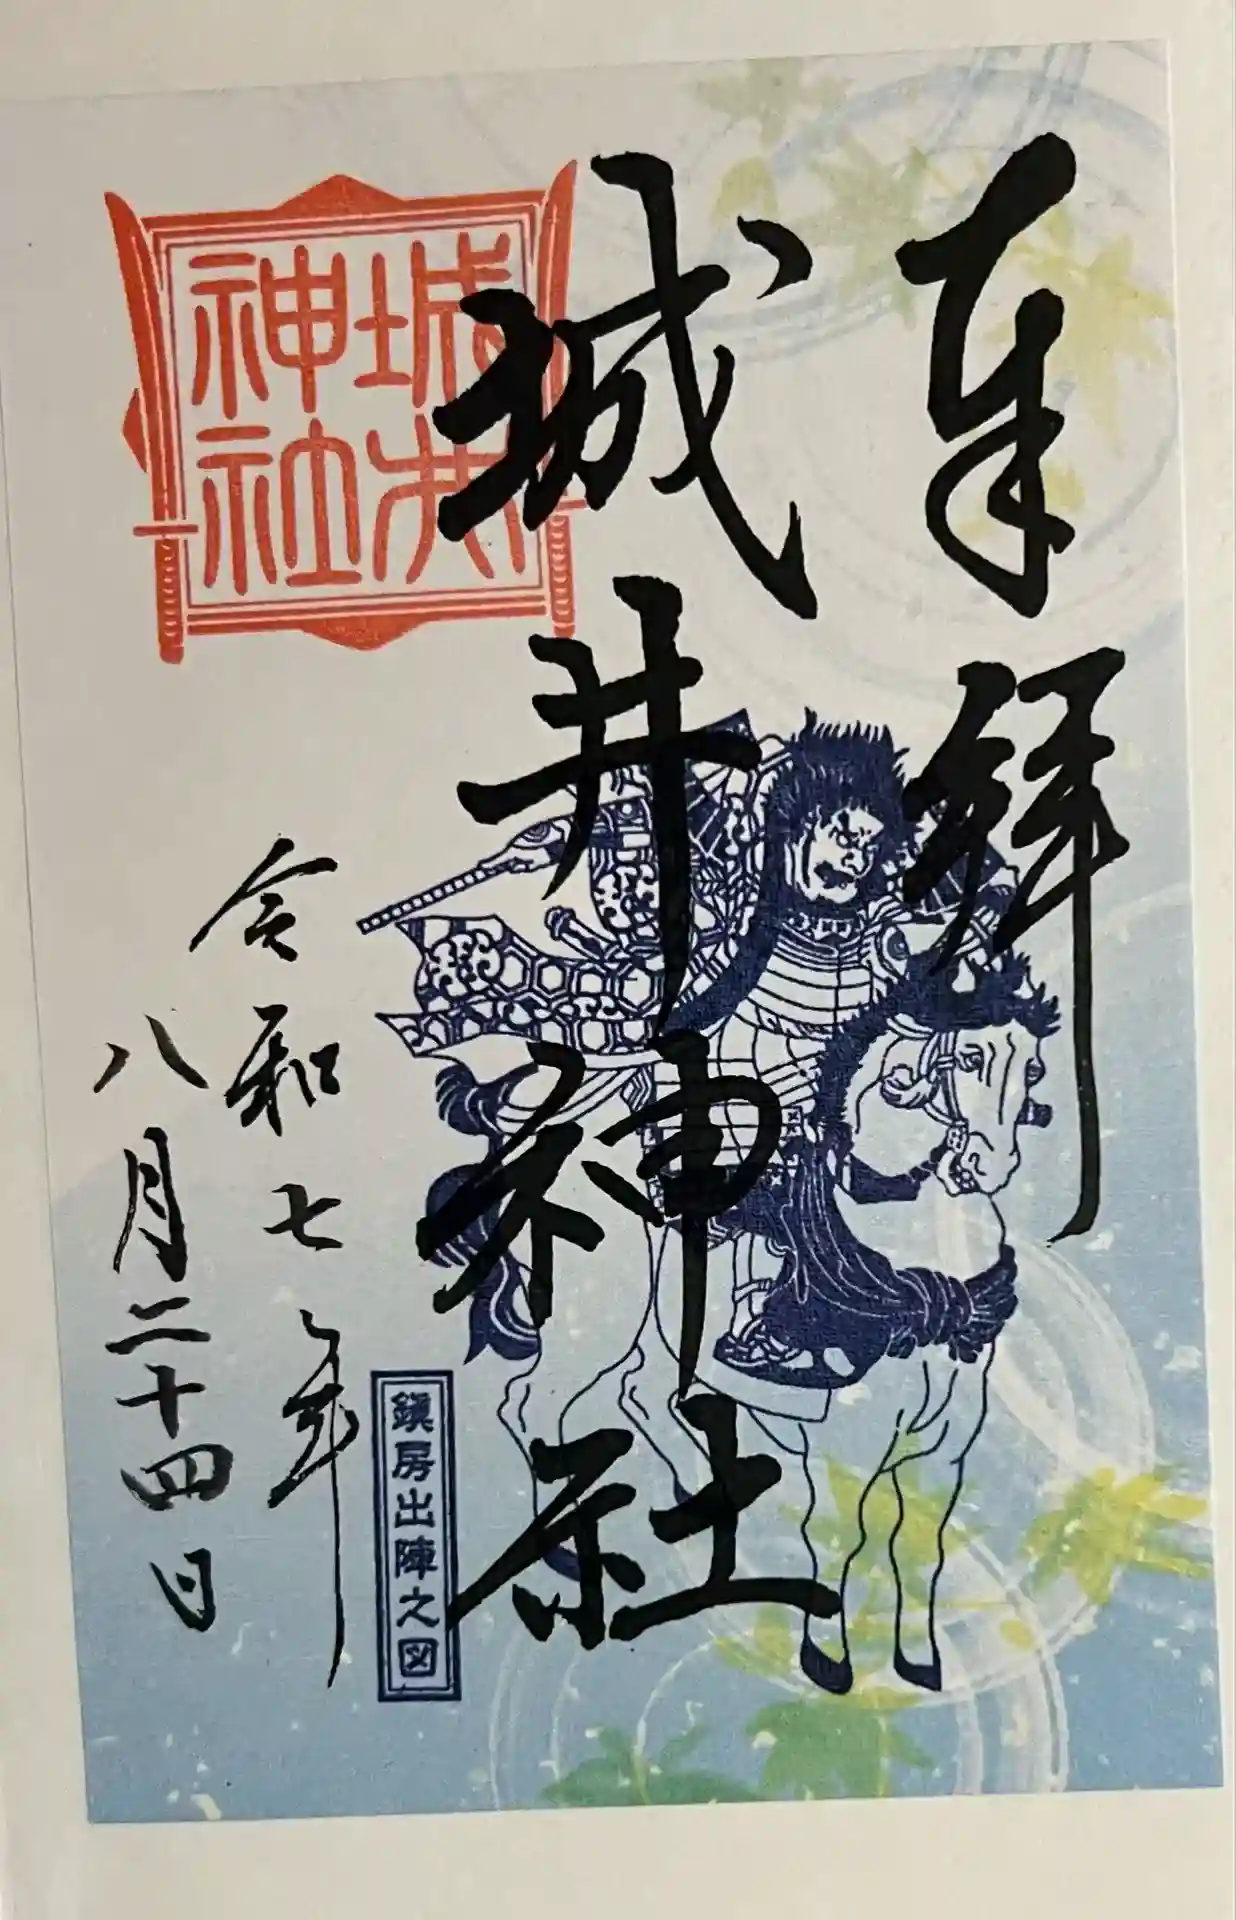 奉拝
城井神社
城井
神社
鎮房出陣之図
令和七年
八月二十四日